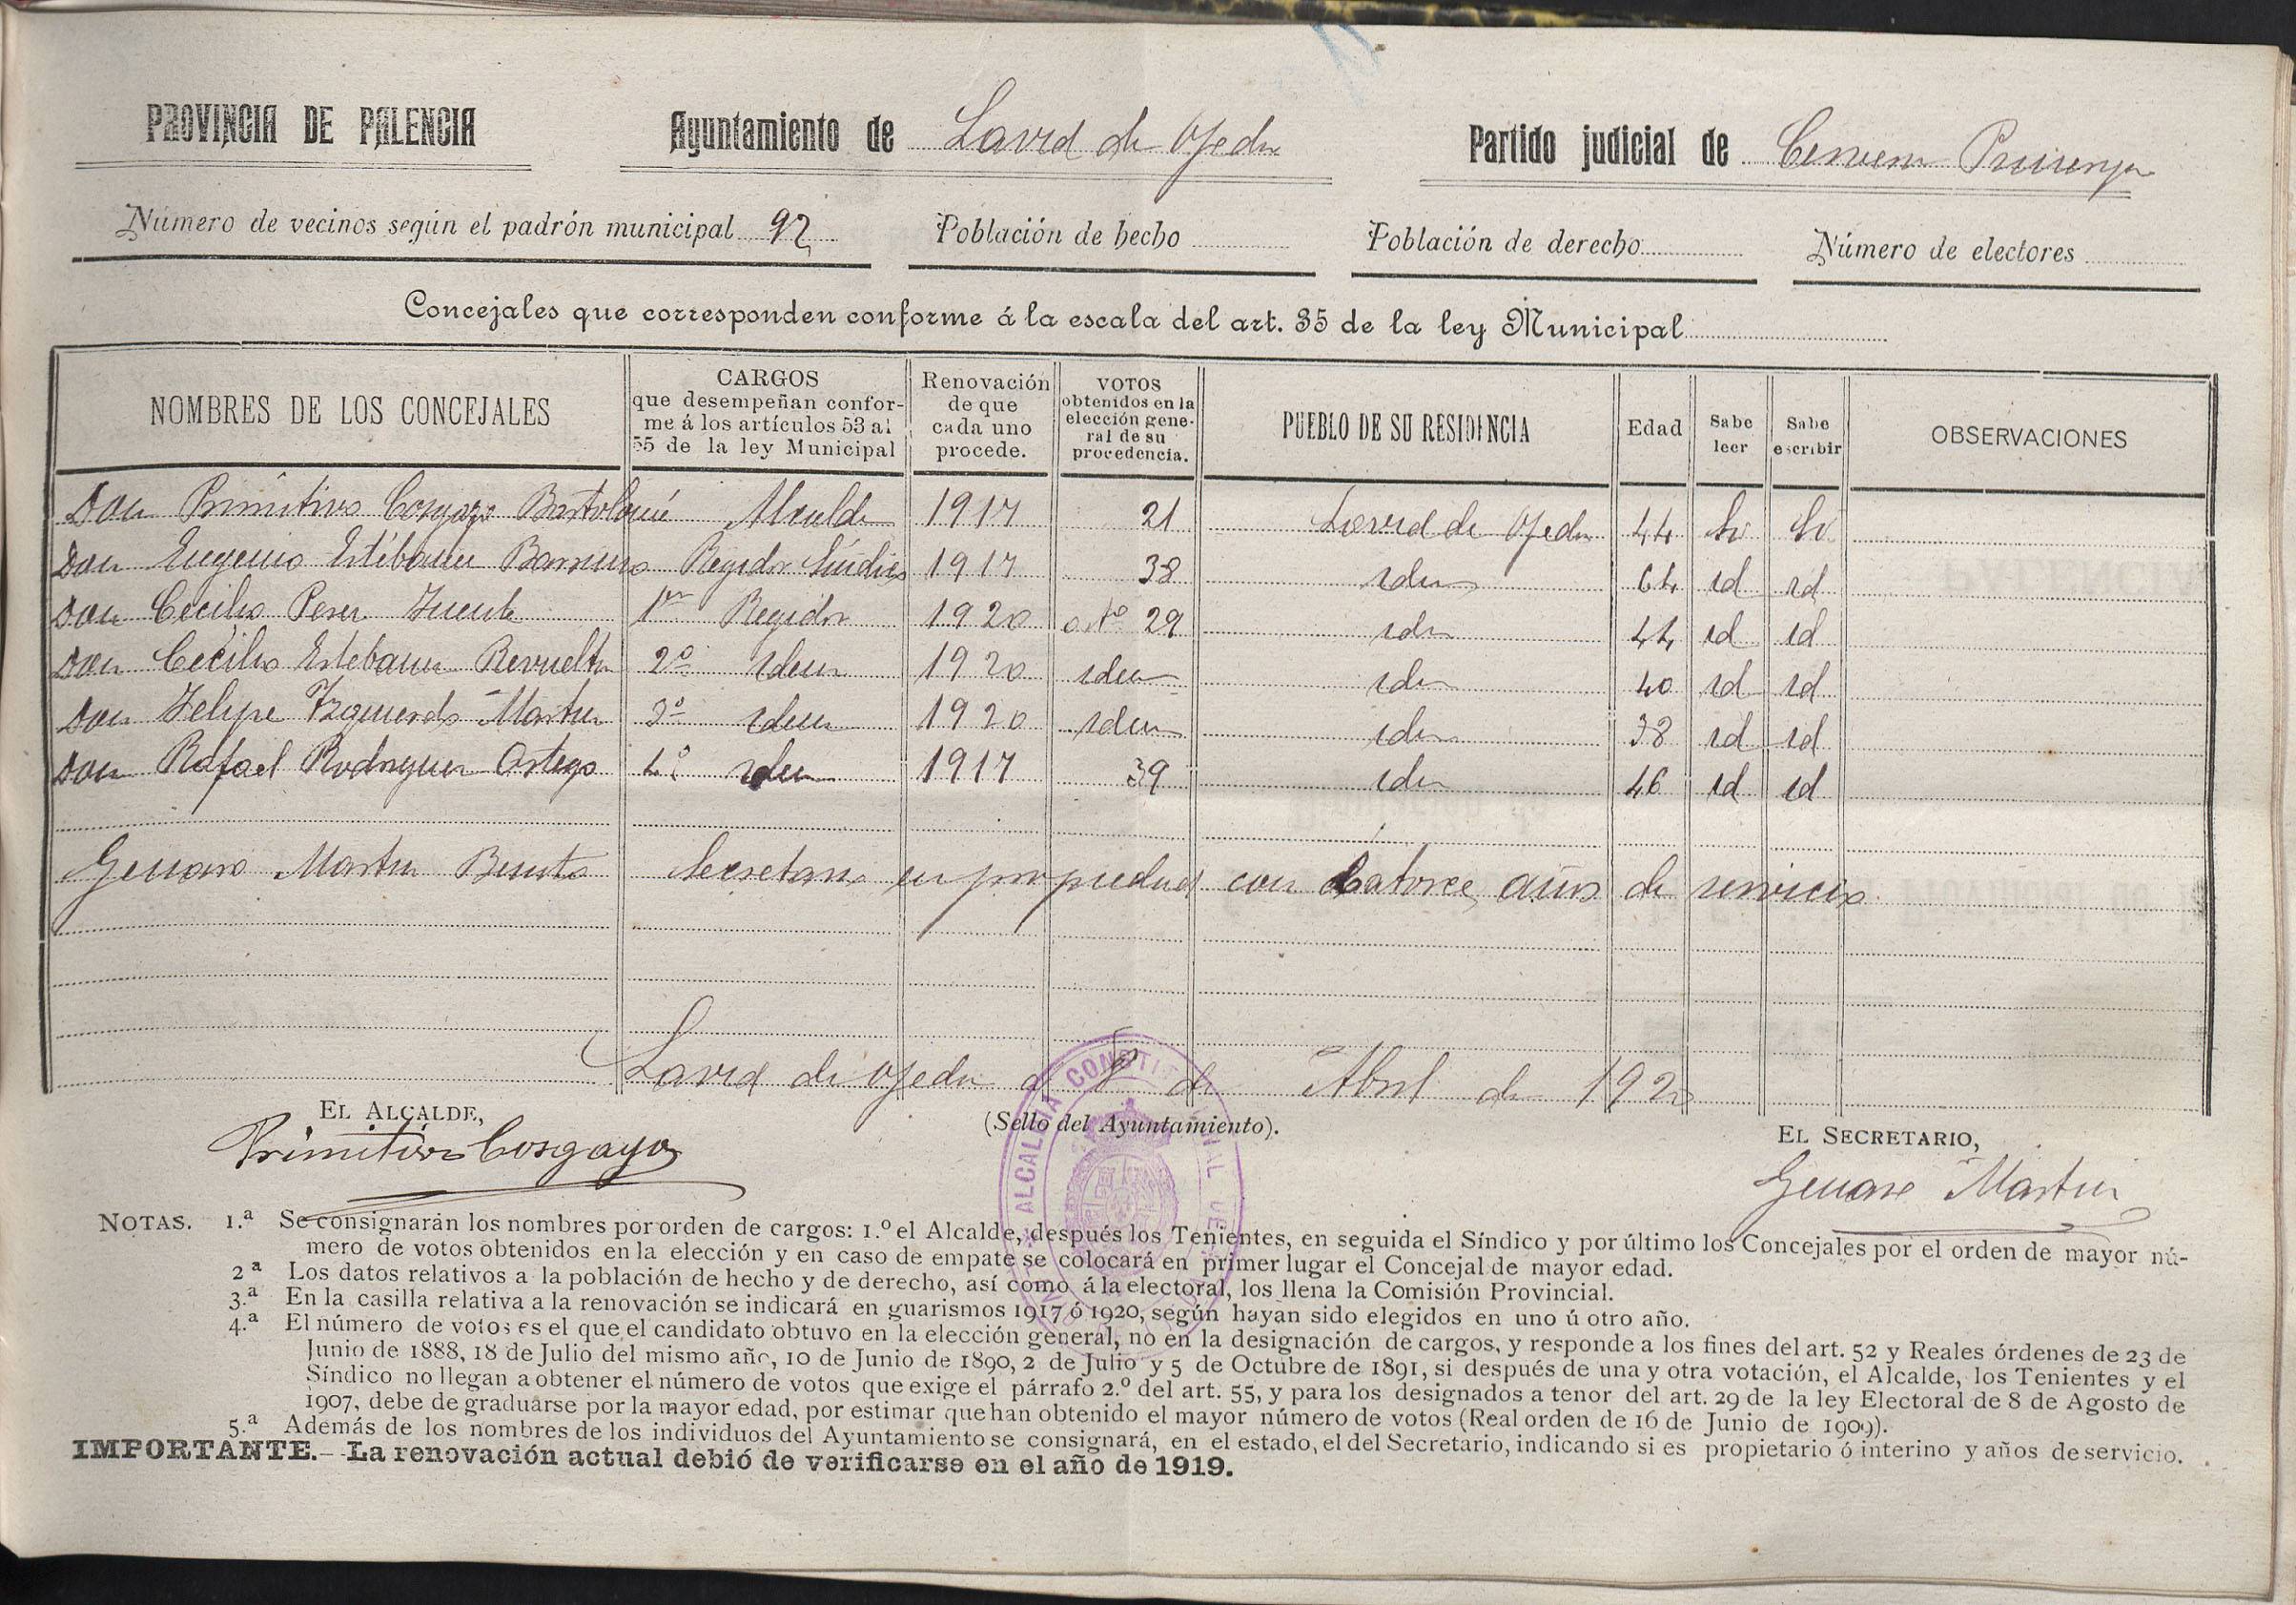 PROVINCIA DE PALENCIA Ayuntamiento de Lavid de Ojeda Partido judicial de Cervera Pisuerga
Número de vecinos según el padrón municipal 92 Población de hecho Población de derecho Número de electores
Concejales que corresponden conforme á la escala del art. 35 de la ley Municipal
NOMBRES DE LOS CONCEJALES
CARGOS
que desempeñan confor-
me á los artículos 53 al
55 de la ley Municipal
Renovación
de que
cada uno
procede.
VOTOS
obtenidos en la
elección gene-
ral de su
procedencia.
PUEBLO DE SU RESIDENCIA
Edad
Sabe
leer
Sabe
escribir
OBSERVACIONES
Don Primitivo Cosgaya Bartolomé Alcalde 1917 21 Lavid de Ojeda 44 Si Si
Don Eugenio Estébanez Barriuso Regidor Síndico 1917 38 idem 64 id id
Don Cecilio Perez Fuente 1er Regidor 1920 artº 29 idem 44 id id
Don Cecilio Estebanez Revuelta 2º idem 1920 idem idem 40 id id
Don Felipe Izquierdo Martin 3º idem 1920 idem idem 38 id id
Don Rafael Rodriguez Ortega 4º idem 1917 39 idem 46 id id
Genaro Martin Benito Secretario en propiedad con Catorce años de servicio
Lavid de Ojeda a 1º de Abril de 1920
EL ALCALDE,
(Sello del Ayuntamiento).
EL SECRETARIO,
Primitivo Cosgaya
Genaro Martin
ALCALDIA CONSTITUCIONAL DE
NOTAS. 1.ª Se consignarán los nombres por orden de cargos: 1.º el Alcalde, después los Tenientes, en seguida el Síndico y por último los Concejales por el orden de mayor nú-
mero de votos obtenidos en la elección y en caso de empate se colocará en primer lugar el Concejal de mayor edad.
2ª Los datos relativos a la población de hecho y de derecho, así como á la electoral, los llena la Comisión Provincial.
3.ª En la casilla relativa a la renovación se indicará en guarismos 1917 ó 1920, según hayan sido elegidos en uno ú otro año.
4.ª El número de votos es el que el candidato obtuvo en la elección general, no en la designación de cargos, y responde a los fines del art. 52 y Reales órdenes de 23 de
Junio de 1888, 18 de Julio del mismo año, 10 de Junio de 1890, 2 de Julio y 5 de Octubre de 1891, si después de una y otra votación, el Alcalde, los Tenientes y el
Síndico no llegan a obtener el número de votos que exige el párrafo 2.º del art. 55, y para los designados a tenor del art. 29 de la ley Electoral de 8 de Agosto de
1907, debe de graduarse por la mayor edad, por estimar que han obtenido el mayor número de votos (Real orden de 16 de Junio de 1909).
5.ª Además de los nombres de los individuos del Ayuntamiento se consignará, en el estado, el del Secretario, indicando si es propietario ó interino y años de servicio.
IMPORTANTE.—La renovación actual debió de verificarse en el año de 1919.